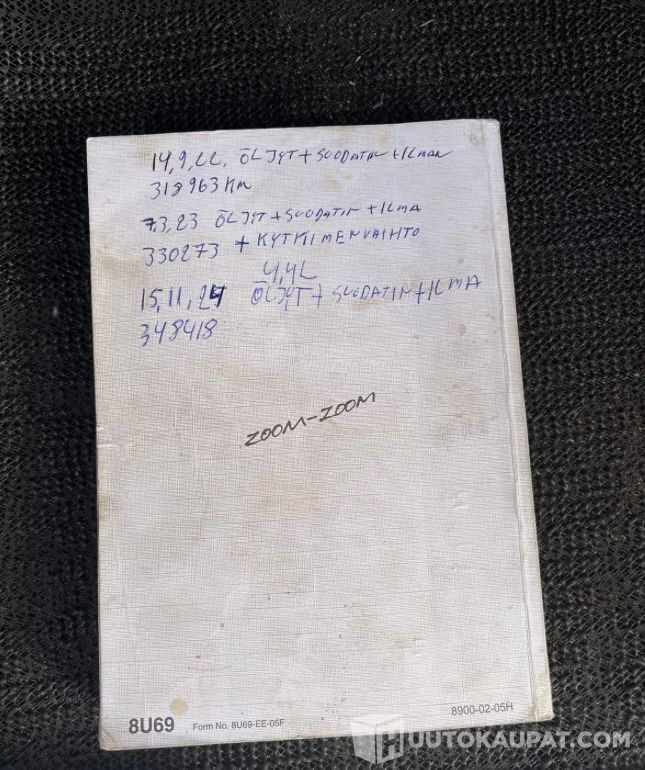 14,9,22, ÖLJYT + SUODATIN + ILMAN
318963 Km
7,3,23 ÖLJYT + SUODATIN + ILMA
330273 + KYTKIMENVAIHTO
4,4L
15,11,24 ÖLJYT + SUODATIN + ILMA
348418
ZOOM-ZOOM
8U69 Form No. 8U69-EE-05F 8900-02-05H
UUTOKAUPAT.COM